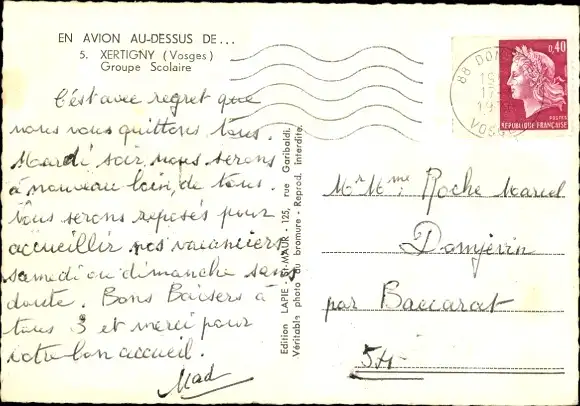 EN AVION AU-DESSUS DE...
5. XERTIGNY (Vosges)
Groupe Scolaire
C'est avec regret que
nous vous quittons tous.
Mardi soir, nous serons
à nouveau loin de tous.
Nous serons reposés pour
accueillir nos vacanciers
samedi ou dimanche sans
doute. Bons Baisers à
tous 3 et merci pour
votre bon accueil.
Mad
Edition LAPIE - St-MAUR - 125, rue Garibaldi.
Véritable photo au bromure - Reprod. interdite
88 DOM
17
VOSGES
0,40
POSTES
REPUBLIQUE FRANÇAISE
Mr Mme Roche Marcel
Domjevin
par Baccarat
54